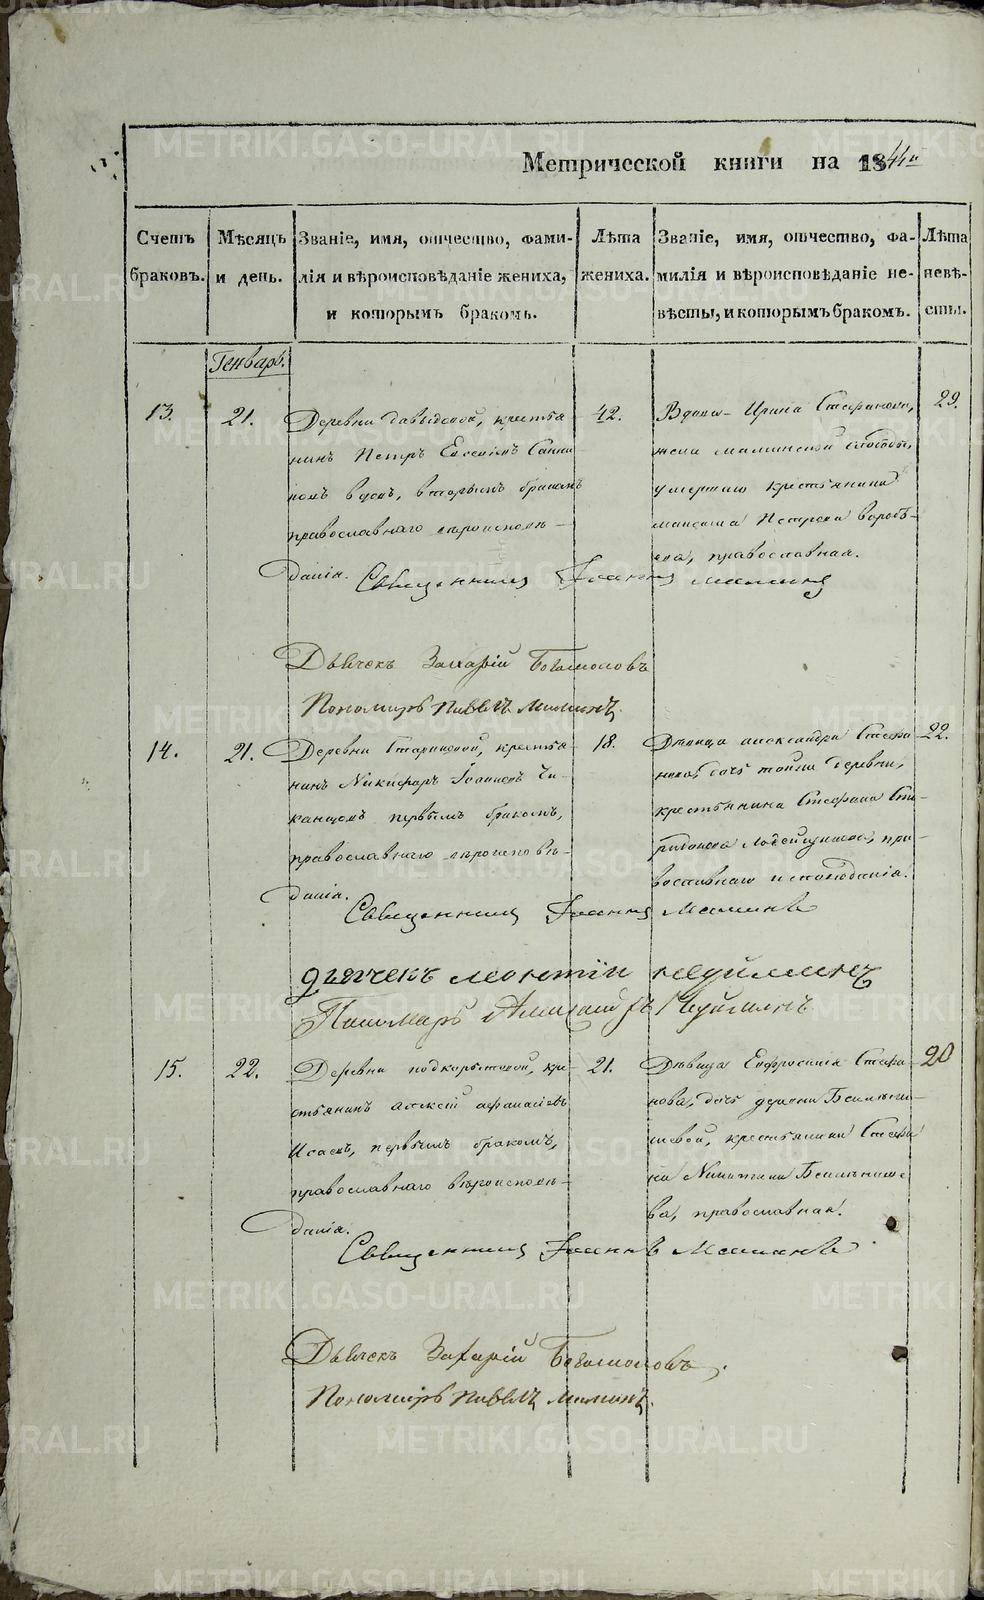 Метрической книги на 1844й
Счетъ браковъ.
Мѣсяцъ и день.
Званіе, имя, отчество, фами-
лія и вѣроисповѣданіе жениха,
и которымъ бракомъ.
Лѣта жениха.
Званіе, имя, отчество, фа-
милія и вѣроисповѣданіе не-
вѣсты, и которымъ бракомъ.
Лѣта невѣ-
сты.
Генварь.
13.
21.
Деревни Давыдовой, крестья
нинъ Петръ
вторымъ бракомъ
православнаго вѣроисповѣ-
данія.
42.
Вдова Ирина Стефанова,
жена Маминской слободы,
умершаго крестьянина
Максима Петрова Воробь-
ева, православная.
29.
Священникъ Іоаннъ Маминъ
Дьячекъ Захарій Богомоловъ
Пономарь Павелъ Маминъ.
14.
21.
Деревни Стариковой, крестья-
нинъ Никифоръ Іоанновъ Чи-
канцевъ первымъ бракомъ,
православнаго вѣроисповѣ-
данія.
18.
Дѣвица Александра Стефа
нова, дочь тойже деревни,
крестьянина Стефана Спи-
ридонова пра-
вославнаго исповѣданія.
22.
Священникъ Іоаннъ Маминъ
дьячекъ Леонтій
Пономарь
15.
22.
Деревни Подкорытовой, кре-
стьянинъ Алексій Афанасіевъ
Исаевъ, первымъ бракомъ,
православнаго вѣроисповѣ-
данія.
21.
Дѣвица Евфросинія Стефа
нова, дочь деревни
шевой, крестьянина Стефа
на Никитина
ва, православная.
20
Священникъ Іоаннъ Маминъ
Дьячекъ Захарій Богомоловъ,
Пономарь Павелъ Маминъ.
METRIKI.GASO-URAL.RU